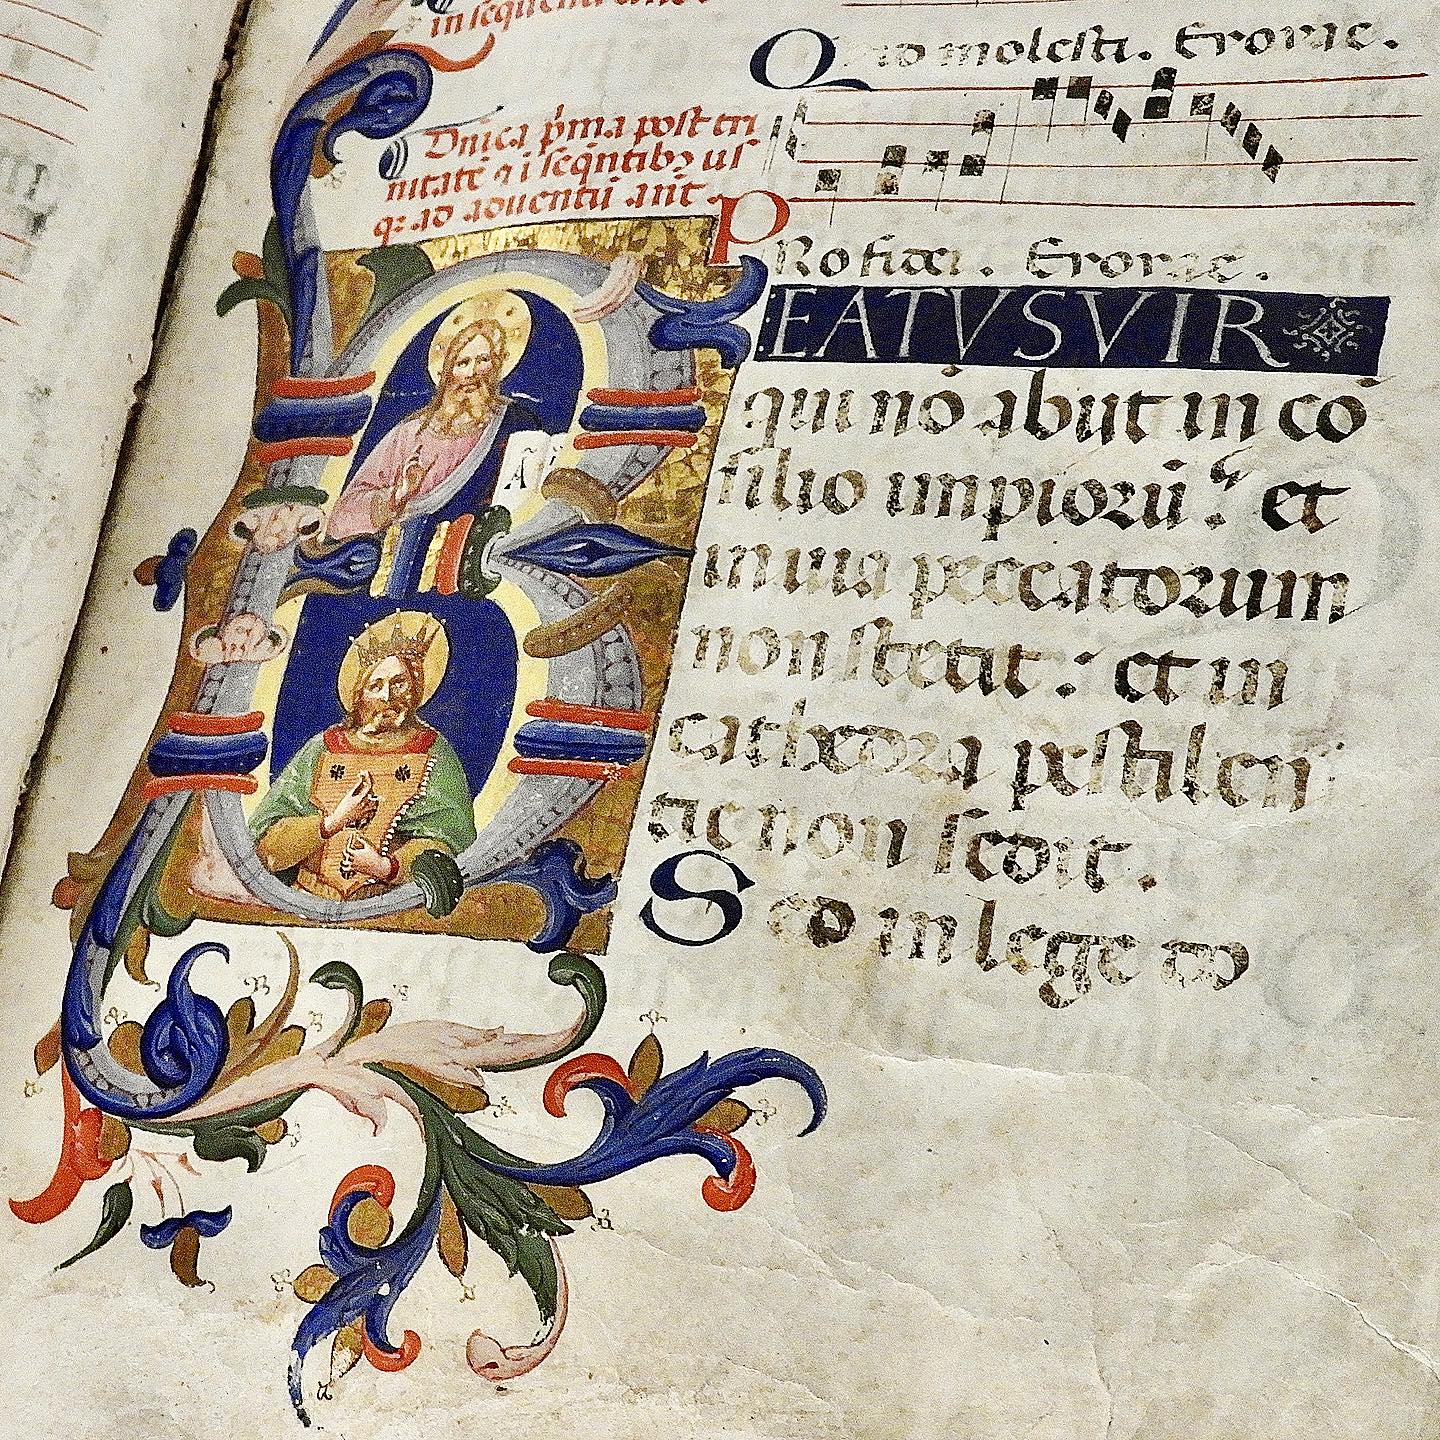 in sequenti
Dnica p̄ma post tri
nitatē ⁊ i seqntibȝ usꝫ
qȝ ad aduentū ant.
Quō molesti. Erovae.
P
Ro fidei. Erovae.
BEATUS VIR
qui nō abiit in cō
silio impiorū: et
in uia peccatorum
non stetit: et in
cathedra pestilen
tie non sedit.
Sed in lege do
A